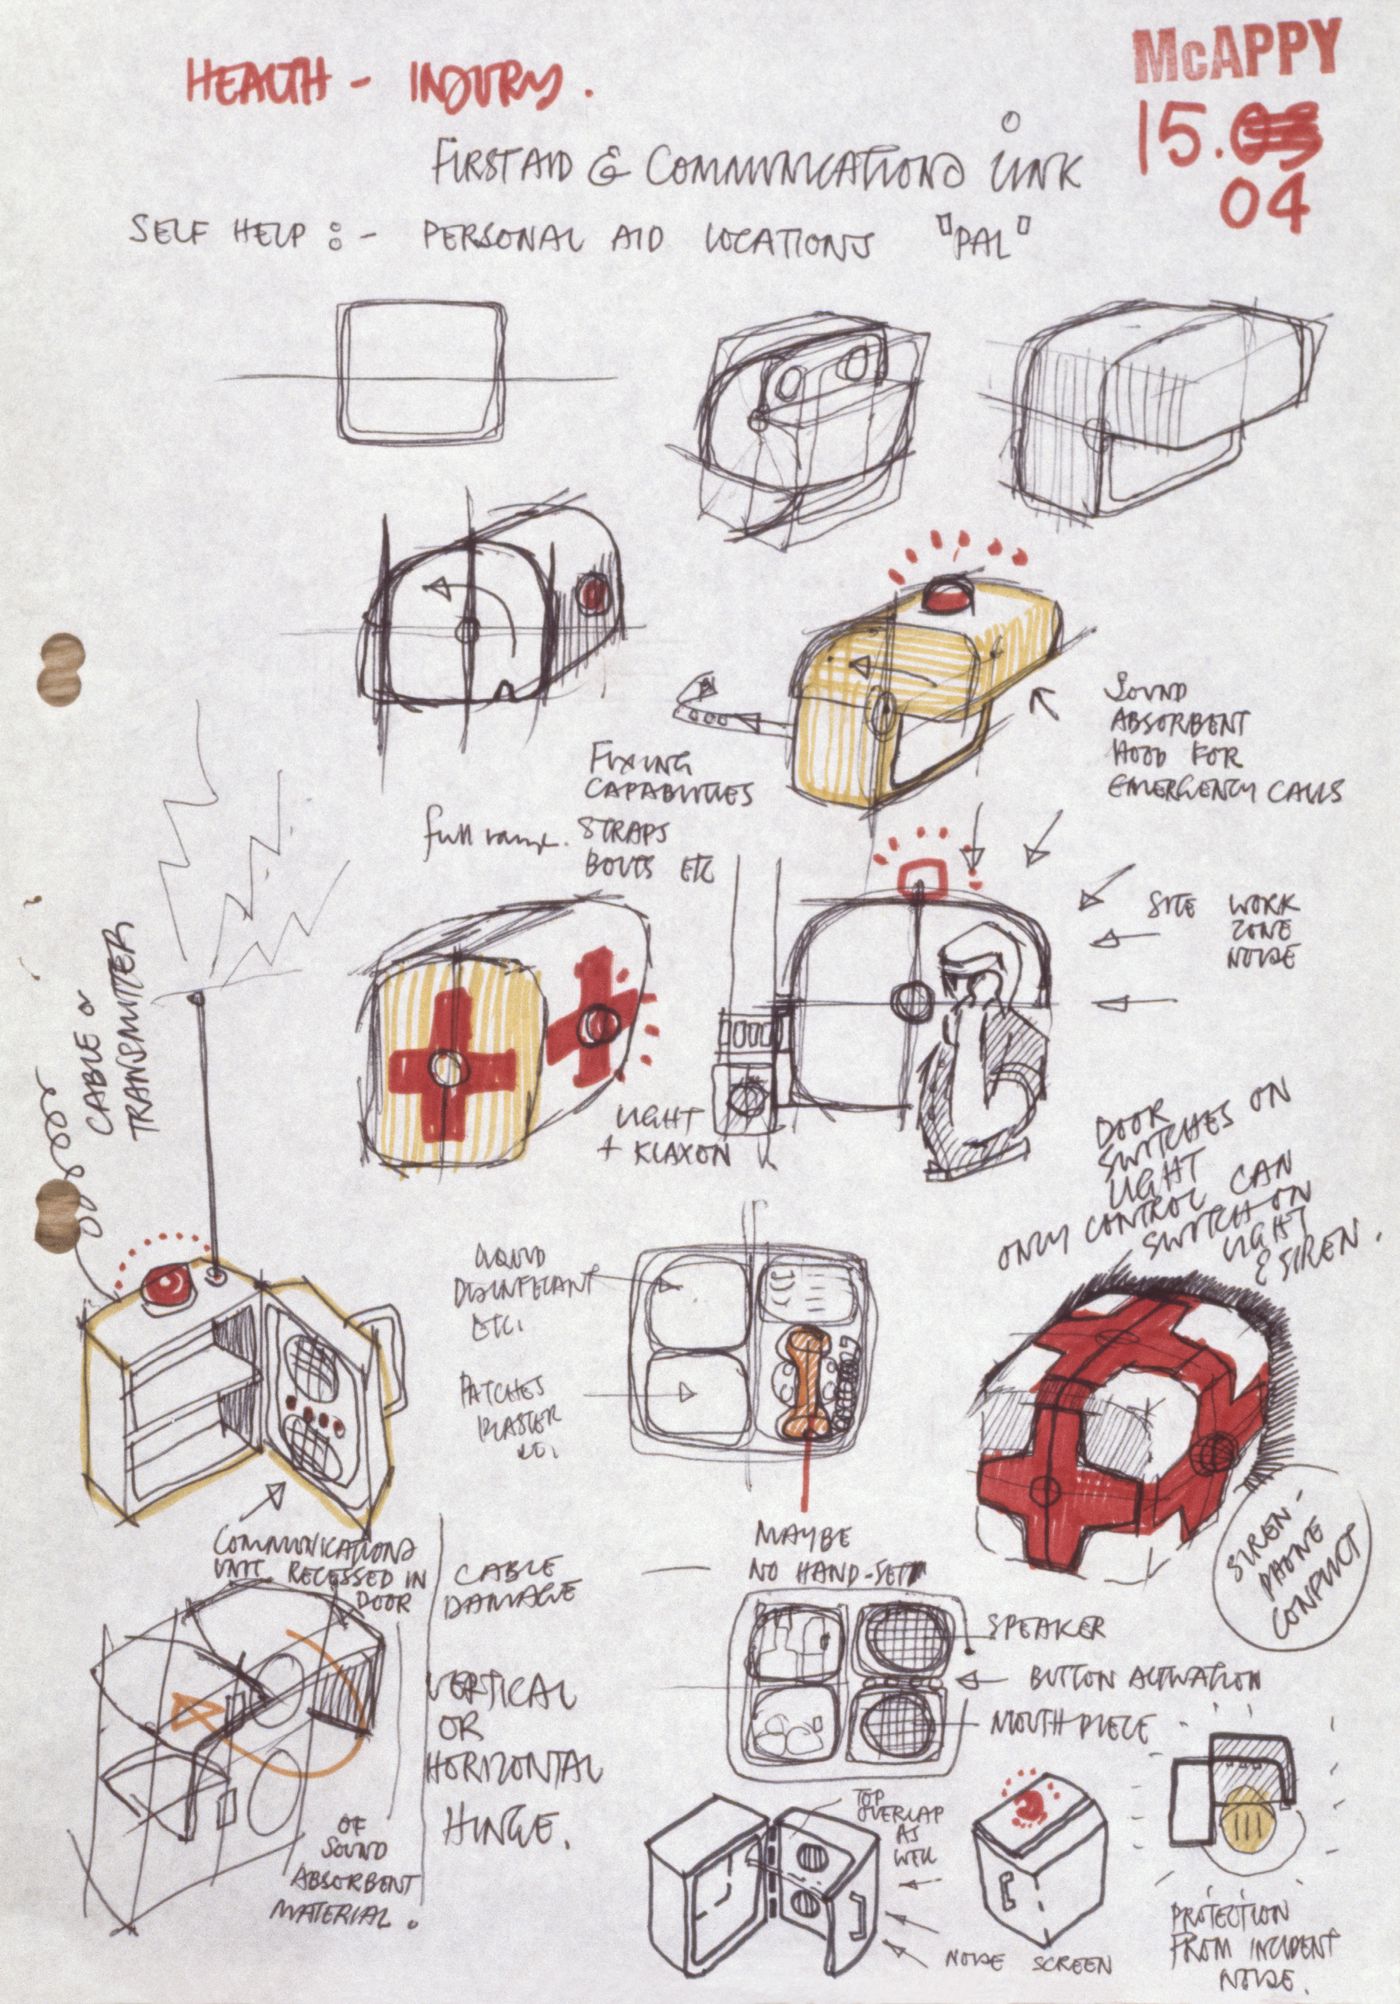 McAPPY
HEALTH - INJURY.
15.03
04
FIRST AID & COMMUNICATIONS LINK
SELF HELP :- PERSONAL AID LOCATIONS "PAL"
SOUND
ABSORBENT
HOOD FOR
EMERGENCY CALLS
FIXING
CAPABILITIES
full range.
STRAPS
BOLTS ETC
SITE WORK
ZONE
NOISE
CABLE or
TRANSMITTER
LIGHT
+ KLAXON
DOOR
SWITCHES ON
LIGHT
ONLY CONTROL CAN
SWITCH ON
LIGHT
& SIREN.
LIQUID
DISINFECTANT
ETC.
PATCHES
PLASTER
ETC.
COMMUNICATIONS
UNIT RECESSED IN
DOOR
CABLE
DAMAGE
—
MAYBE
NO HAND-SET
SIREN-
PHONE
CONFLICT
SPEAKER
BUTTON ACTIVATION
MOUTH PIECE
VERTICAL
OR
HORIZONTAL
HINGE.
OF
SOUND
ABSORBENT
MATERIAL.
TOP
OVERLAP
AS
WELL
NOISE SCREEN
PROTECTION
FROM INCIDENT
NOISE.